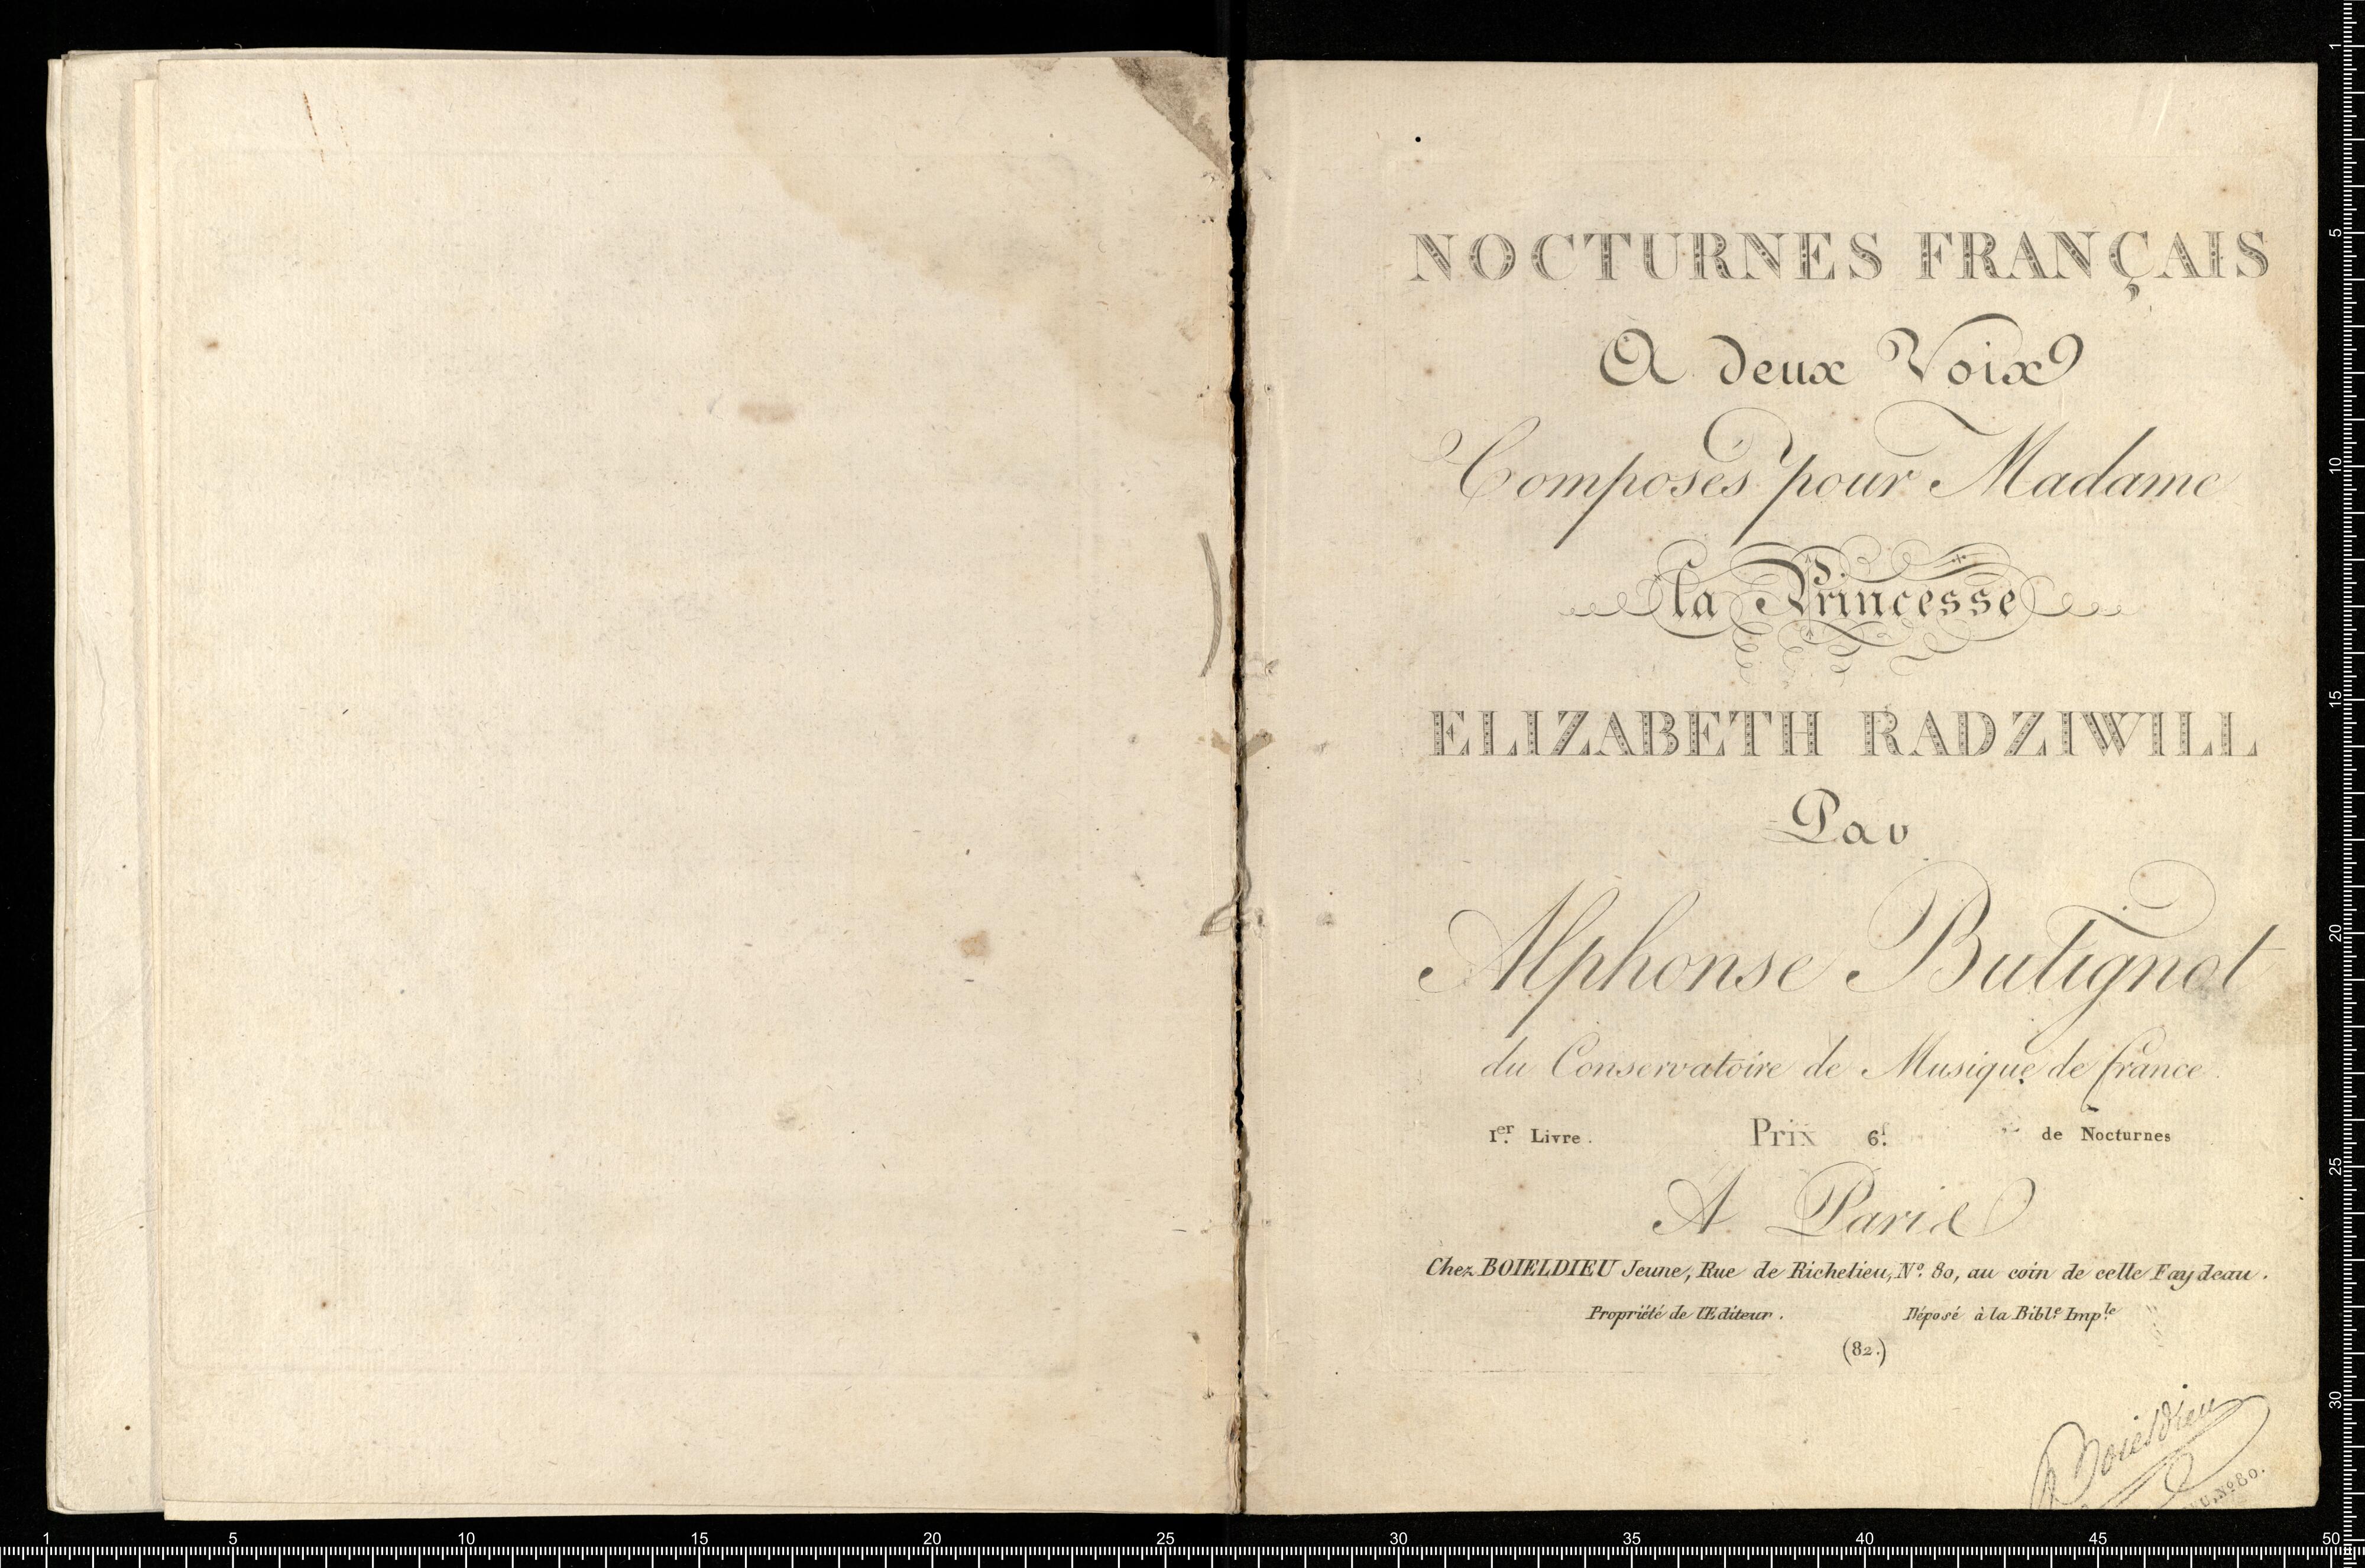 NOCTURNES FRANÇAIS
A deux Voix
Composés pour Madame
la Princesse
ELIZABETH RADZIWILL
Par
Alphonse Butignot
du Conservatoire de Musique de france
1er. Livre. Prix 6f. de Nocturnes
A Paris
Chez BOIELDIEU Jeune, Rue de Richelieu, No. 80, au coin de celle Faydeau.
Propriété de l'Editeur. Déposé à la Bible. Imple.
(82.)
Boieldieu
U, No 80.